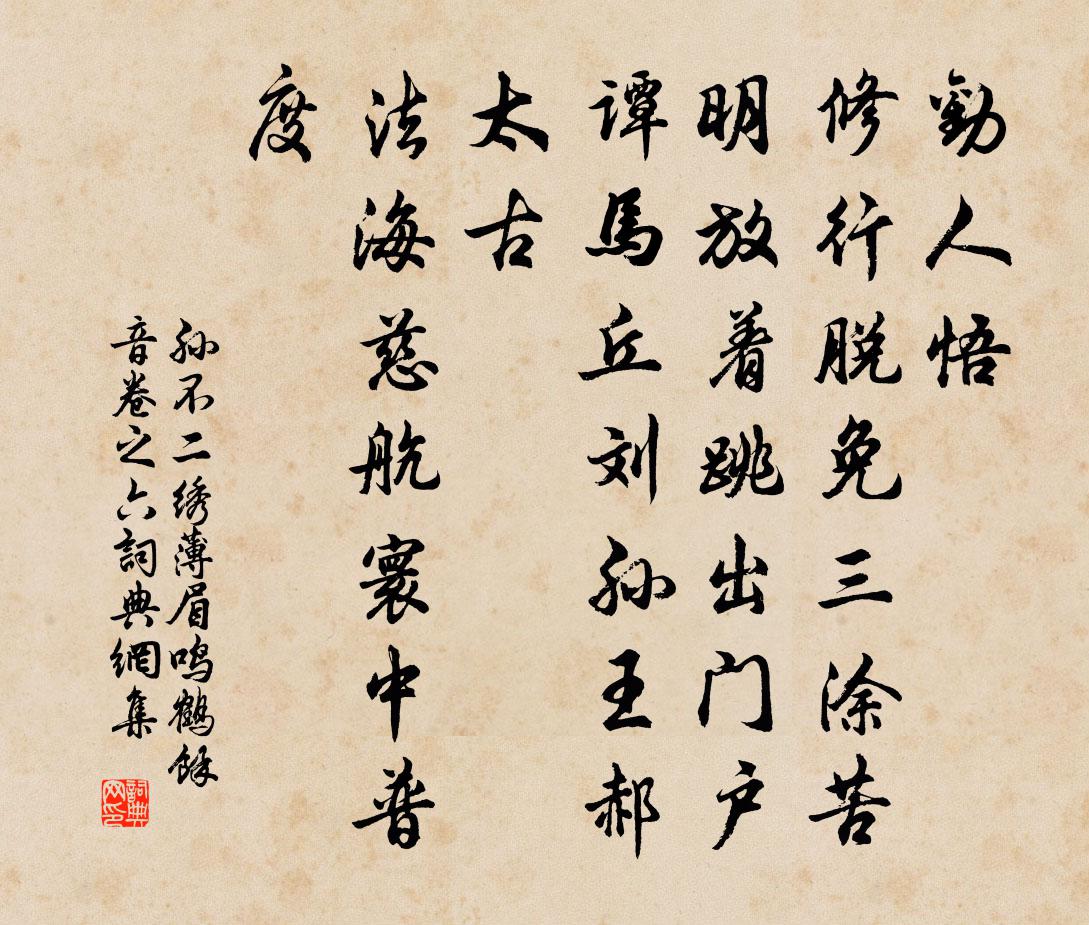 勸人悟
修行脱免三涂苦
明放着跳出门户
谭馬丘刘孙王郝
太古
法海慈航寰中普
度
孙不二绣薄眉鸣鶴餘
音卷之六詞典網集
詞典网印